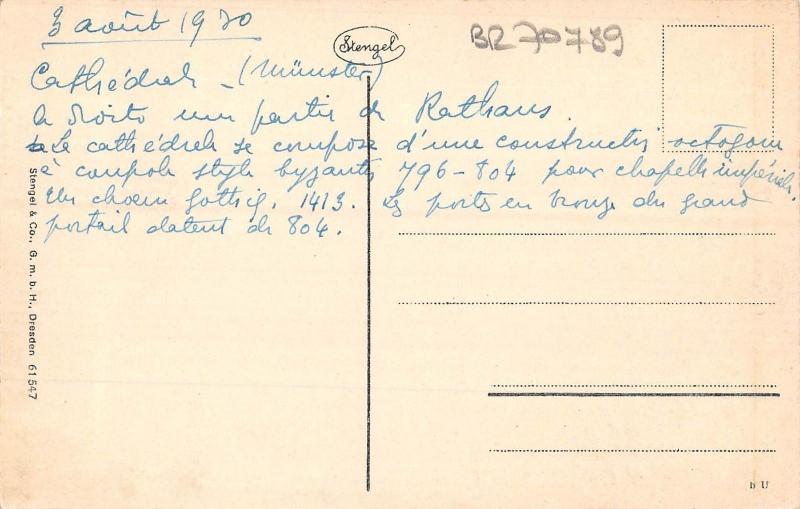 3 août 1930
Stengel
BR 70789
Cathédrale - (Münster)
à droite une partie du Rathaus.
La cathédrale se compose d'une construction octogone
à coupole style byzantin 796-804 pour chapelle impériale.
Un choeur gothiq. 1413. Les portes en bronze du grand
portail datent de 804.
Stengel & Co., G. m. b. H., Dresden 61547
b U